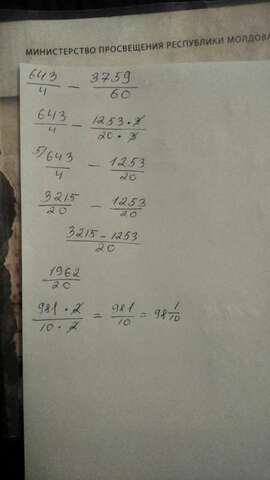 МИНИСТЕРСТВО ПРОСВЕЩЕНИЯ РЕСПУБЛИКИ МОЛДОВА
643/4 - 3759/60
643/4 - 1253·3/20·3
5/643/4 - 1253/20
3215/20 - 1253/20
3215-1253/20
1962/20
981·2/10·2 = 981/10 = 98 1/10